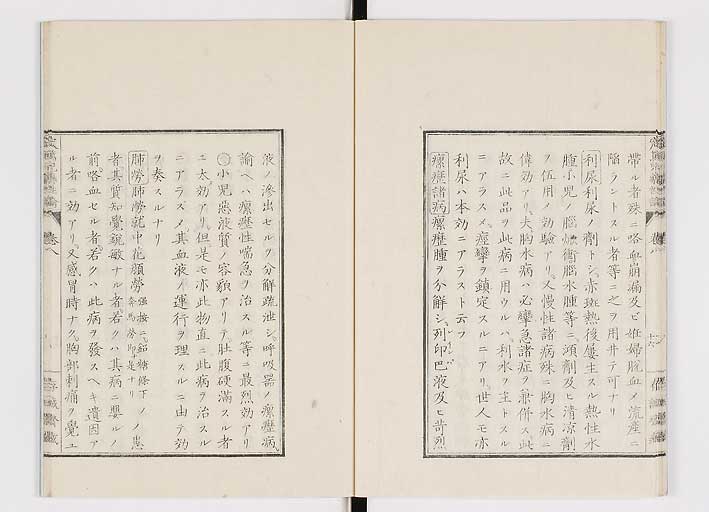 帶ル者殊ニ咯血崩漏及ヒ妊婦脱血メ流産ニ
陥ラントスル者等ニ之ヲ用井テ可ナリ
利尿利尿ノ劑トシ赤斑熱後屢主スル熱性水
腫小兒ノ腦焮衝腦水腫等ニ㵋劑及ヒ清凉劑
ヲ伍用メ効驗アリ又慢性諸病殊ニ胸水病ニ
偉効アリ夫胸水病ハ必攣急諸症ヲ兼併ス此
故ニ此品ヲ此病ニ用ウルハ利水ヲ主トスル
ニアラスメ痙攣ヲ鎮定スルニアリ世人モ亦
利尿ハ本効ニアラスト云フ
瘰癧諸病瘰癧腫ヲ分解シ列印巴液及ヒ苛烈
液ノ滲出セルヲ分解疏泄シ呼吸器ノ瘰癧病
諭ヘハ瘰癧性喘急ヲ治スル等ニ最烈効アリ
小兒惡液質ノ容貌アリテ肚腹硬滿スル者
ニ太効アリ但是モ亦此物直ニ此病ヲ治スル
ニアラスメ其血液ノ運行ヲ理スルニ由テ効
ヲ奏スルナリ
肺勞肺勞就中花顔勞強按ニ鉛糖條下ノ奔馬勞即是ナリノ患
者其質知覺鋭敏ナル者若クハ其病ニ嬰ルノ
前咯血セル者若クハ此病ヲ發スヘキ遺因ア
ル者ニ効アリ又感冒時ナク胸部刺痛ヲ覺ユ